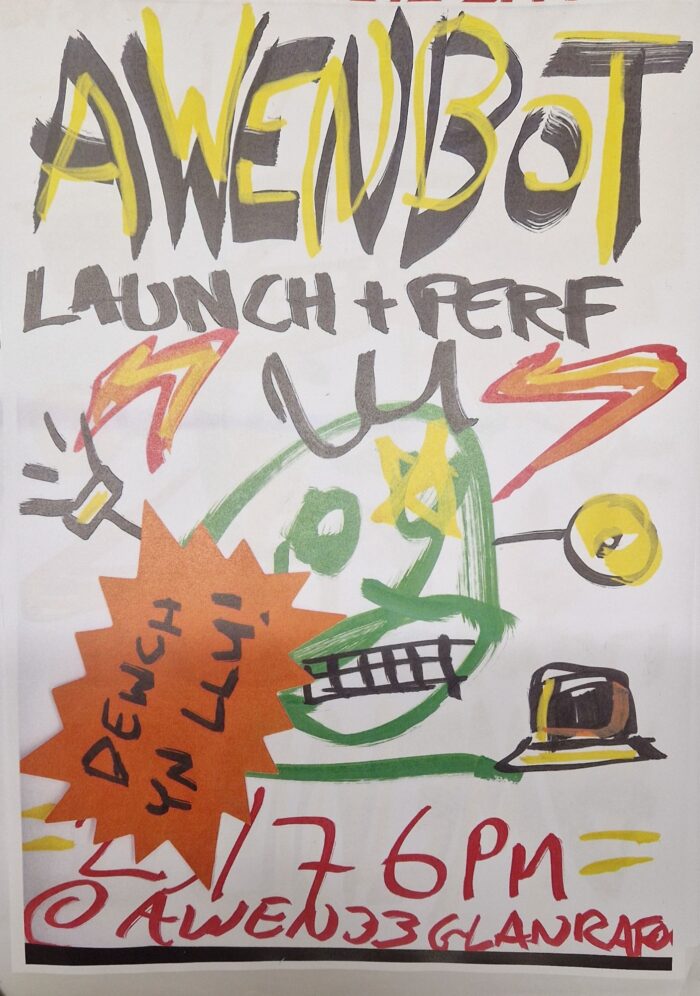 AWENBOT
LAUNCH + PERF
DEWCH
YN LLU!
/7 6PM
@AWEN33GLANRAFO